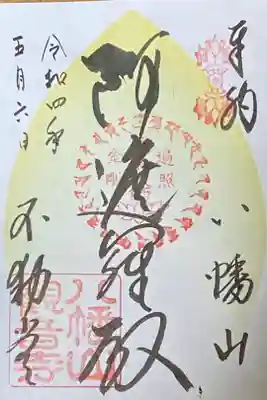 奉納
八幡山
阿遮羅
遍照
金剛
令和四年
五月六日
不動堂
八幡山
観音寺